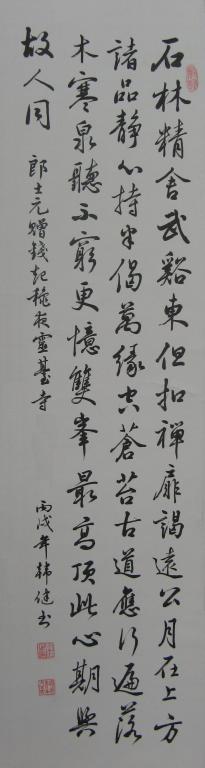 石林精舍武谿東但扣禪扉謁遠公月在上方
諸品靜心持半偈萬緣空蒼苔古道應行遍落
木寒泉聽不窮更憶雙峯最高頂此心期與
故人同
郎士元贈錢起穐夜靈臺寺
丙戌年韓健書